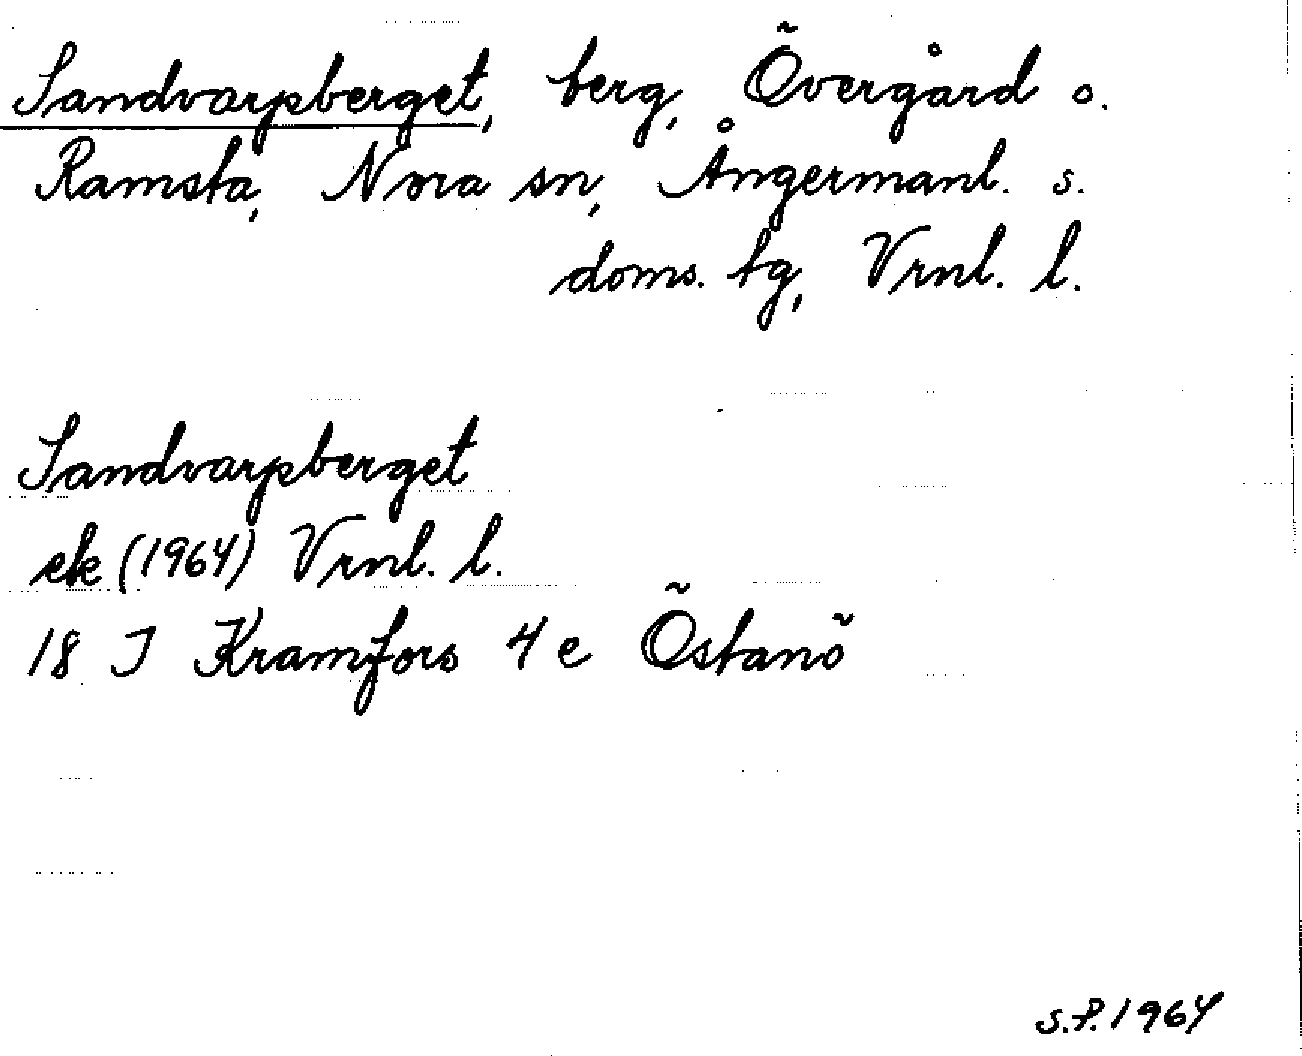 Sandvarpberget, berg, Övergård o.
Ramsta, Nora sn, Ångermanl. s.
doms. tg, Vrnl. l.
Sandvarpberget
ek (1964) Vrnl. l.
18 J Kramfors 4 e Östanö
S.P. 1964